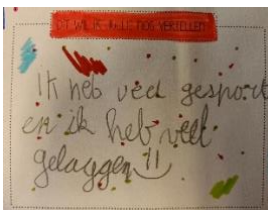 DIT WIL IK JULLIE NOG VERTELLEN
Ik heb veel gesport
en ik heb veel
gelaggen!!